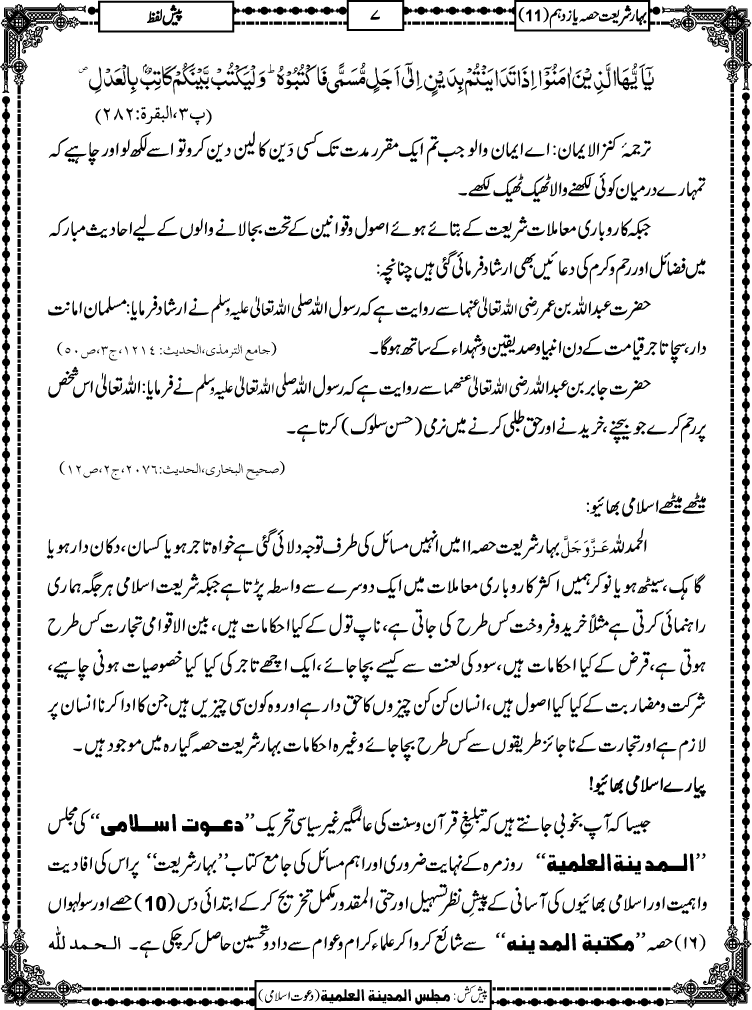 بہارِ شریعت حصہ یازدہم (11)
۷
پیش لفظ
یٰۤاَیُّهَا الَّذِیْنَ اٰمَنُوْۤا اِذَا تَدَایَنْتُمْ بِدَیْنٍ اِلٰۤى اَجَلٍ مُّسَمًّى فَاكْتُبُوْهُؕ-وَ لْیَكْتُبْ بَّیْنَكُمْ كَاتِبٌۢ بِالْعَدْلِ۪-
(پ۳،البقرۃ:۲۸۲)
ترجمۂ کنزالایمان: اے ایمان والو جب تم ایک مقرر مدت تک کسی دَین کا لین دین کرو تو اسے لکھ لو اور چاہیے کہ
تمہارے درمیان کوئی لکھنے والا ٹھیک ٹھیک لکھے۔
جبکہ کاروباری معاملات شریعت کے بتائے ہوئے اصول و قوانین کے تحت بجا لانے والوں کے لیے احادیث مبارکہ
میں فضائل اور رحم و کرم کی دعائیں بھی ارشاد فرمائی گئی ہیں چنانچہ:
حضرت عبداللہ بن عمر رضی اللہ تعالیٰ عنہما سے روایت ہے کہ رسول اللہ صلی اللہ تعالیٰ علیہ وسلم نے ارشاد فرمایا: مسلمان امانت
دار، سچا تاجر قیامت کے دن انبیا و صدیقین و شہداء کے ساتھ ہوگا۔ (جامع الترمذی،الحدیث: ۱۲۱۴،ج۳،ص۵۰)
حضرت جابر بن عبداللہ رضی اللہ تعالیٰ عنہما سے روایت ہے کہ رسول اللہ صلی اللہ تعالیٰ علیہ وسلم نے فرمایا: اللہ تعالیٰ اس شخص
پر رحم کرے جو بیچنے، خریدنے اور حق طلبی کرنے میں نرمی (حسن سلوک) کرتا ہے۔
(صحیح البخاری،الحدیث:۲۰۷۶،ج۲،ص۱۲)
میٹھے میٹھے اسلامی بھائیو:
الحمدللہ عَزَّوَجَلَّ بہارِ شریعت حصہ ۱۱ میں انہیں مسائل کی طرف توجہ دلائی گئی ہے خواہ تاجر ہو یا کسان، دکان دار ہو یا
گاہک، سیٹھ ہو یا نوکر ہمیں اکثر کاروباری معاملات میں ایک دوسرے سے واسطہ پڑتا ہے جبکہ شریعت اسلامی ہر جگہ ہماری
راہنمائی کرتی ہے مثلاً خرید و فروخت کس طرح کی جاتی ہے، ناپ تول کے کیا احکامات ہیں، بین الاقوامی تجارت کس طرح
ہوتی ہے، قرض کے کیا احکامات ہیں، سود کی لعنت سے کیسے بچا جائے، ایک اچھے تاجر کی کیا کیا خصوصیات ہونی چاہیے،
شرکت و مضاربت کے کیا کیا اصول ہیں، انسان کن کن چیزوں کا حق دار ہے اور وہ کون سی چیزیں ہیں جن کا ادا کرنا انسان پر
لازم ہے اور تجارت کے ناجائز طریقوں سے کس طرح بچا جائے وغیرہ احکامات بہارِ شریعت حصہ گیارہ میں موجود ہیں۔
پیارے اسلامی بھائیو!
جیسا کہ آپ بخوبی جانتے ہیں کہ تبلیغِ قرآن و سنت کی عالمگیر غیر سیاسی تحریک ’’دعوت اسلامی‘‘ کی مجلس
’’المدینۃ العلمیۃ‘‘ روزمرہ کے نہایت ضروری اور اہم مسائل کی جامع کتاب ’’بہارِ شریعت‘‘ پر اس کی افادیت
و اہمیت اور اسلامی بھائیوں کی آسانی کے پیشِ نظر تسہیل اور حتی المقدور مکمل تخریج کر کے ابتدائی دس (10) حصے اور سولہواں
(۱۶) حصہ ’’مکتبۃ المدینہ‘‘ سے شائع کروا کر علماء کرام و عوام سے داد و تحسین حاصل کر چکی ہے۔ الحمد للہ
پیش کش: مجلس المدینۃ العلمیۃ (دعوت اسلامی)